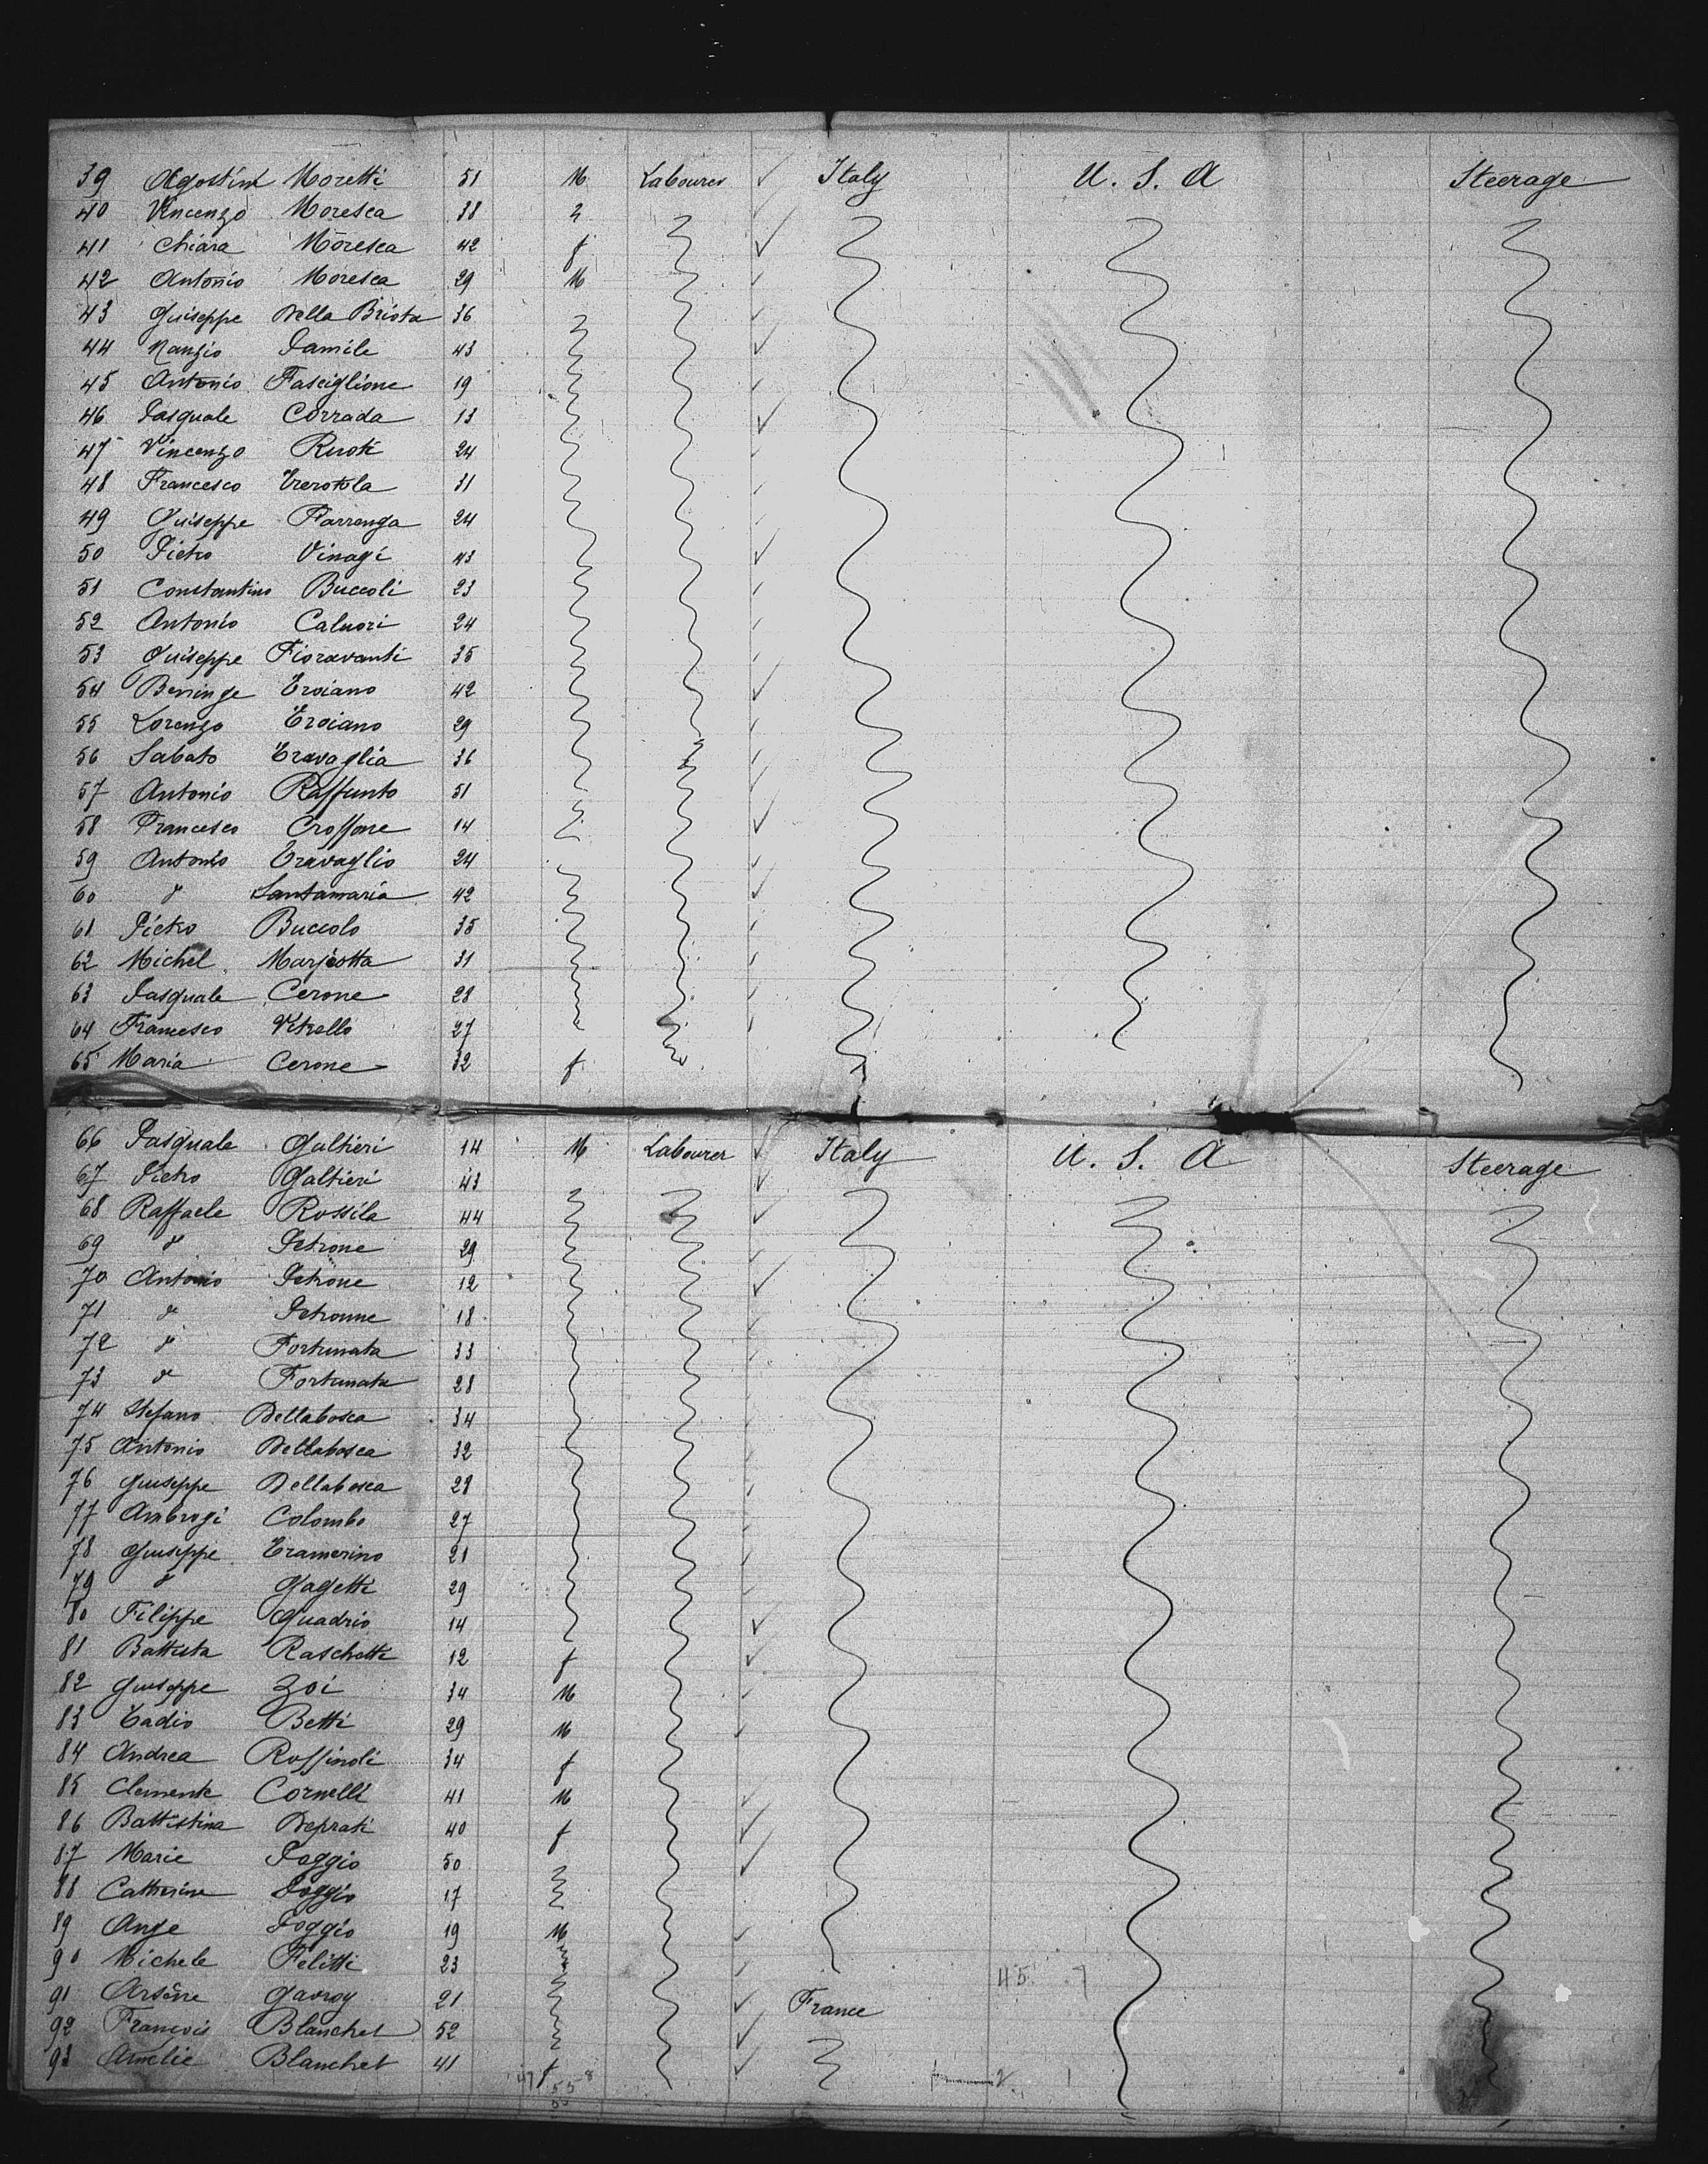 39 Agostino Moretti 51 M Labourer ✓ Italy U. S. A Steerage
40 Vincenzo Moresca 38
41 Chiara Moresca 42 f ✓
42 Antonio Moresca 29 M
43 Guiseppe Della Briota 36
44 Nanzio Pamile 43 ✓
45 Antonio Fasciglione 19
46 Pasquale Corrada 13 ✓
47 Vincenzo Ruoti 24
48 Francesco Trerotola 31
49 Guiseppe Parrenga 24
50 Pietro Vinagi 43 ✓
51 Constantino Buccoli 23
52 Antonio Caluori 24
53 Guiseppe Fioravanti 35
54 Beninge Troiano 42 ✓
55 Lorenzo Troiano 29
56 Sabato Travaglia 36
57 Antonio Raffunto 51 ✓
58 Francesco Croffone 14 ✓
59 Antonio Travaglio 24
60 d Santamaria 42 ✓
61 Pietro Buccolo 35
62 Michel Marjotta 31
63 Pasquale Cerone 28
64 Francesco Vitrello 27
65 Maria Cerone 32 f
66 Pasquale Galtieri 14 M Labourer ✓ Italy U. S. A Steerage
67 Pietro Galtieri 43 ✓
68 Raffaele Rossila 44 ✓
69 d Petrone 29
70 Antonio Petrone 12 ✓
71 d Petronne 18
72 d Fortunata 33
73 d Fortunata 28
74 Stefano Dellabosca 34
75 Antonio Dellabosca 32
76 Guiseppe Dellabosca 28
77 Ambrogi Colombo 27
78 Guiseppe Tramerino 21
79 d Gagetti 29
80 Filippe Quadrio 14 ✓
81 Battista Raschetti 12 f ✓
82 Guiseppe Zoi 34 M
83 Tadio Betti 29 M ✓
84 Andrea Roffinoli 34 f
85 Clemente Cornelli 41 M ✓
86 Battistina Deprati 40 f ✓
87 Marie Poggio 50 ✓
88 Catherine Poggio 17
89 Ange Poggio 19 M ✓
90 Michele Felitti 23 ✓
91 Arsène Gavroy 21 ✓ France
92 François Blanchet 52 ✓
93 Amelie Blanchet 41 f ✓